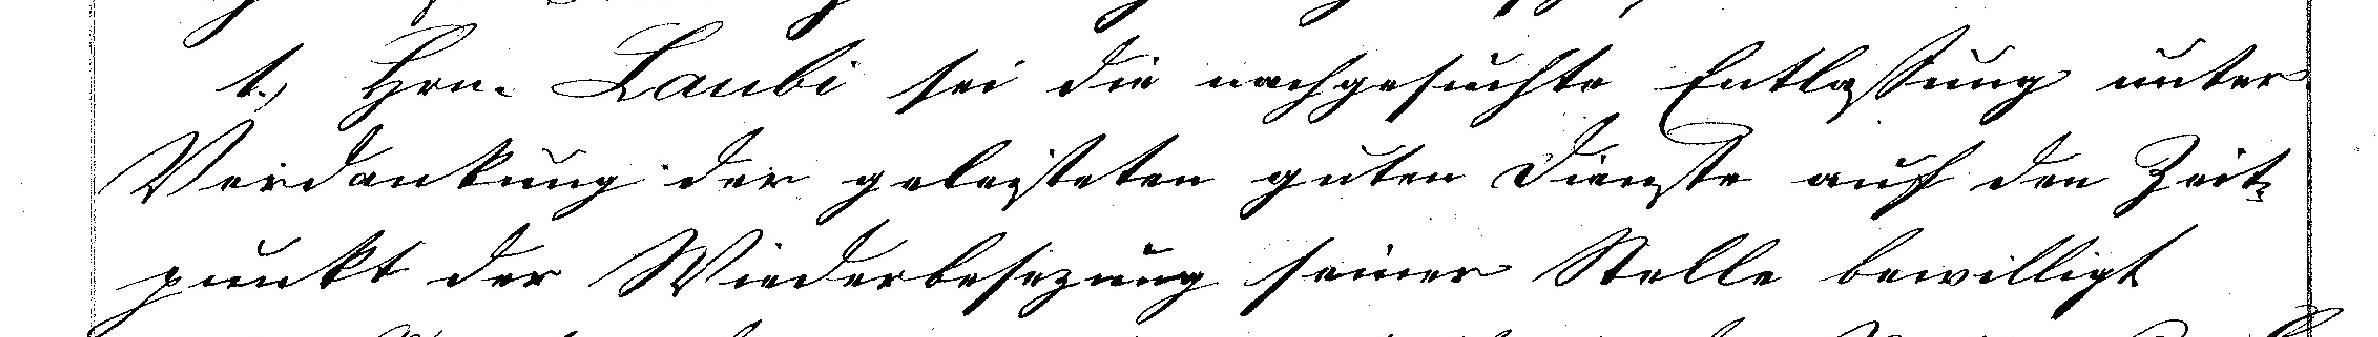 1., Hrn. Laubi sei die nachgesuchte Entlassung unter
Verdankung der geleisteten guten Dienste auf den Zeit-
punkt der Wiederbesezung seiner Stelle bewilligt